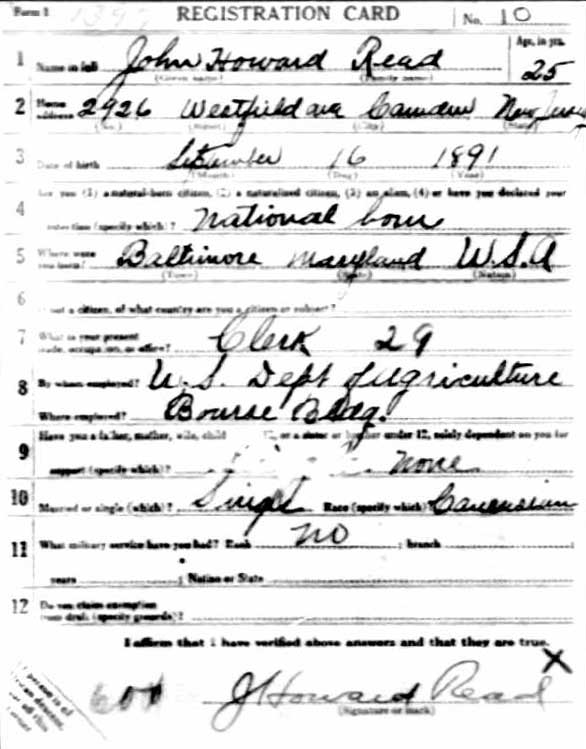 Form 1 REGISTRATION CARD No. 10
1 Name in full John Howard Read Age, in yrs. 25
(Given name) (Family name)
2 Home address 2926 Westfield ave Camden New Jersey
(No.) (Street) (City) (State)
3 Date of birth September 16 1891
(Month) (Day) (Year)
4 Are you (1) a natural-born citizen, (2) a naturalized citizen, (3) an alien, (4) or have you declared your
intention (specify which)? National born
5 Where were you born? Baltimore Maryland U.S.A
(Town) (State) (Nation)
6 not a citizen, of what country are you a citizen or subject?
7 What is your present trade, occupation, or office? Clerk 29
8 By whom employed? U.S. Dept of Agriculture
Where employed? Bourse Bldg.
9 Have you a father, mother, wife, child 12, or a sister or brother under 12, solely dependent on you for
support (specify which)? none
10 Married or single (which)? Single Race (specify which)? Caucasian
11 What military service have you had? Rank NO ; branch
years ; Nation or State
12 Do you claim exemption from draft (specify grounds)?
I affirm that I have verified above answers and that they are true.
X
J Howard Read
(Signature or mark)
person is of
African descent,
off this
corner